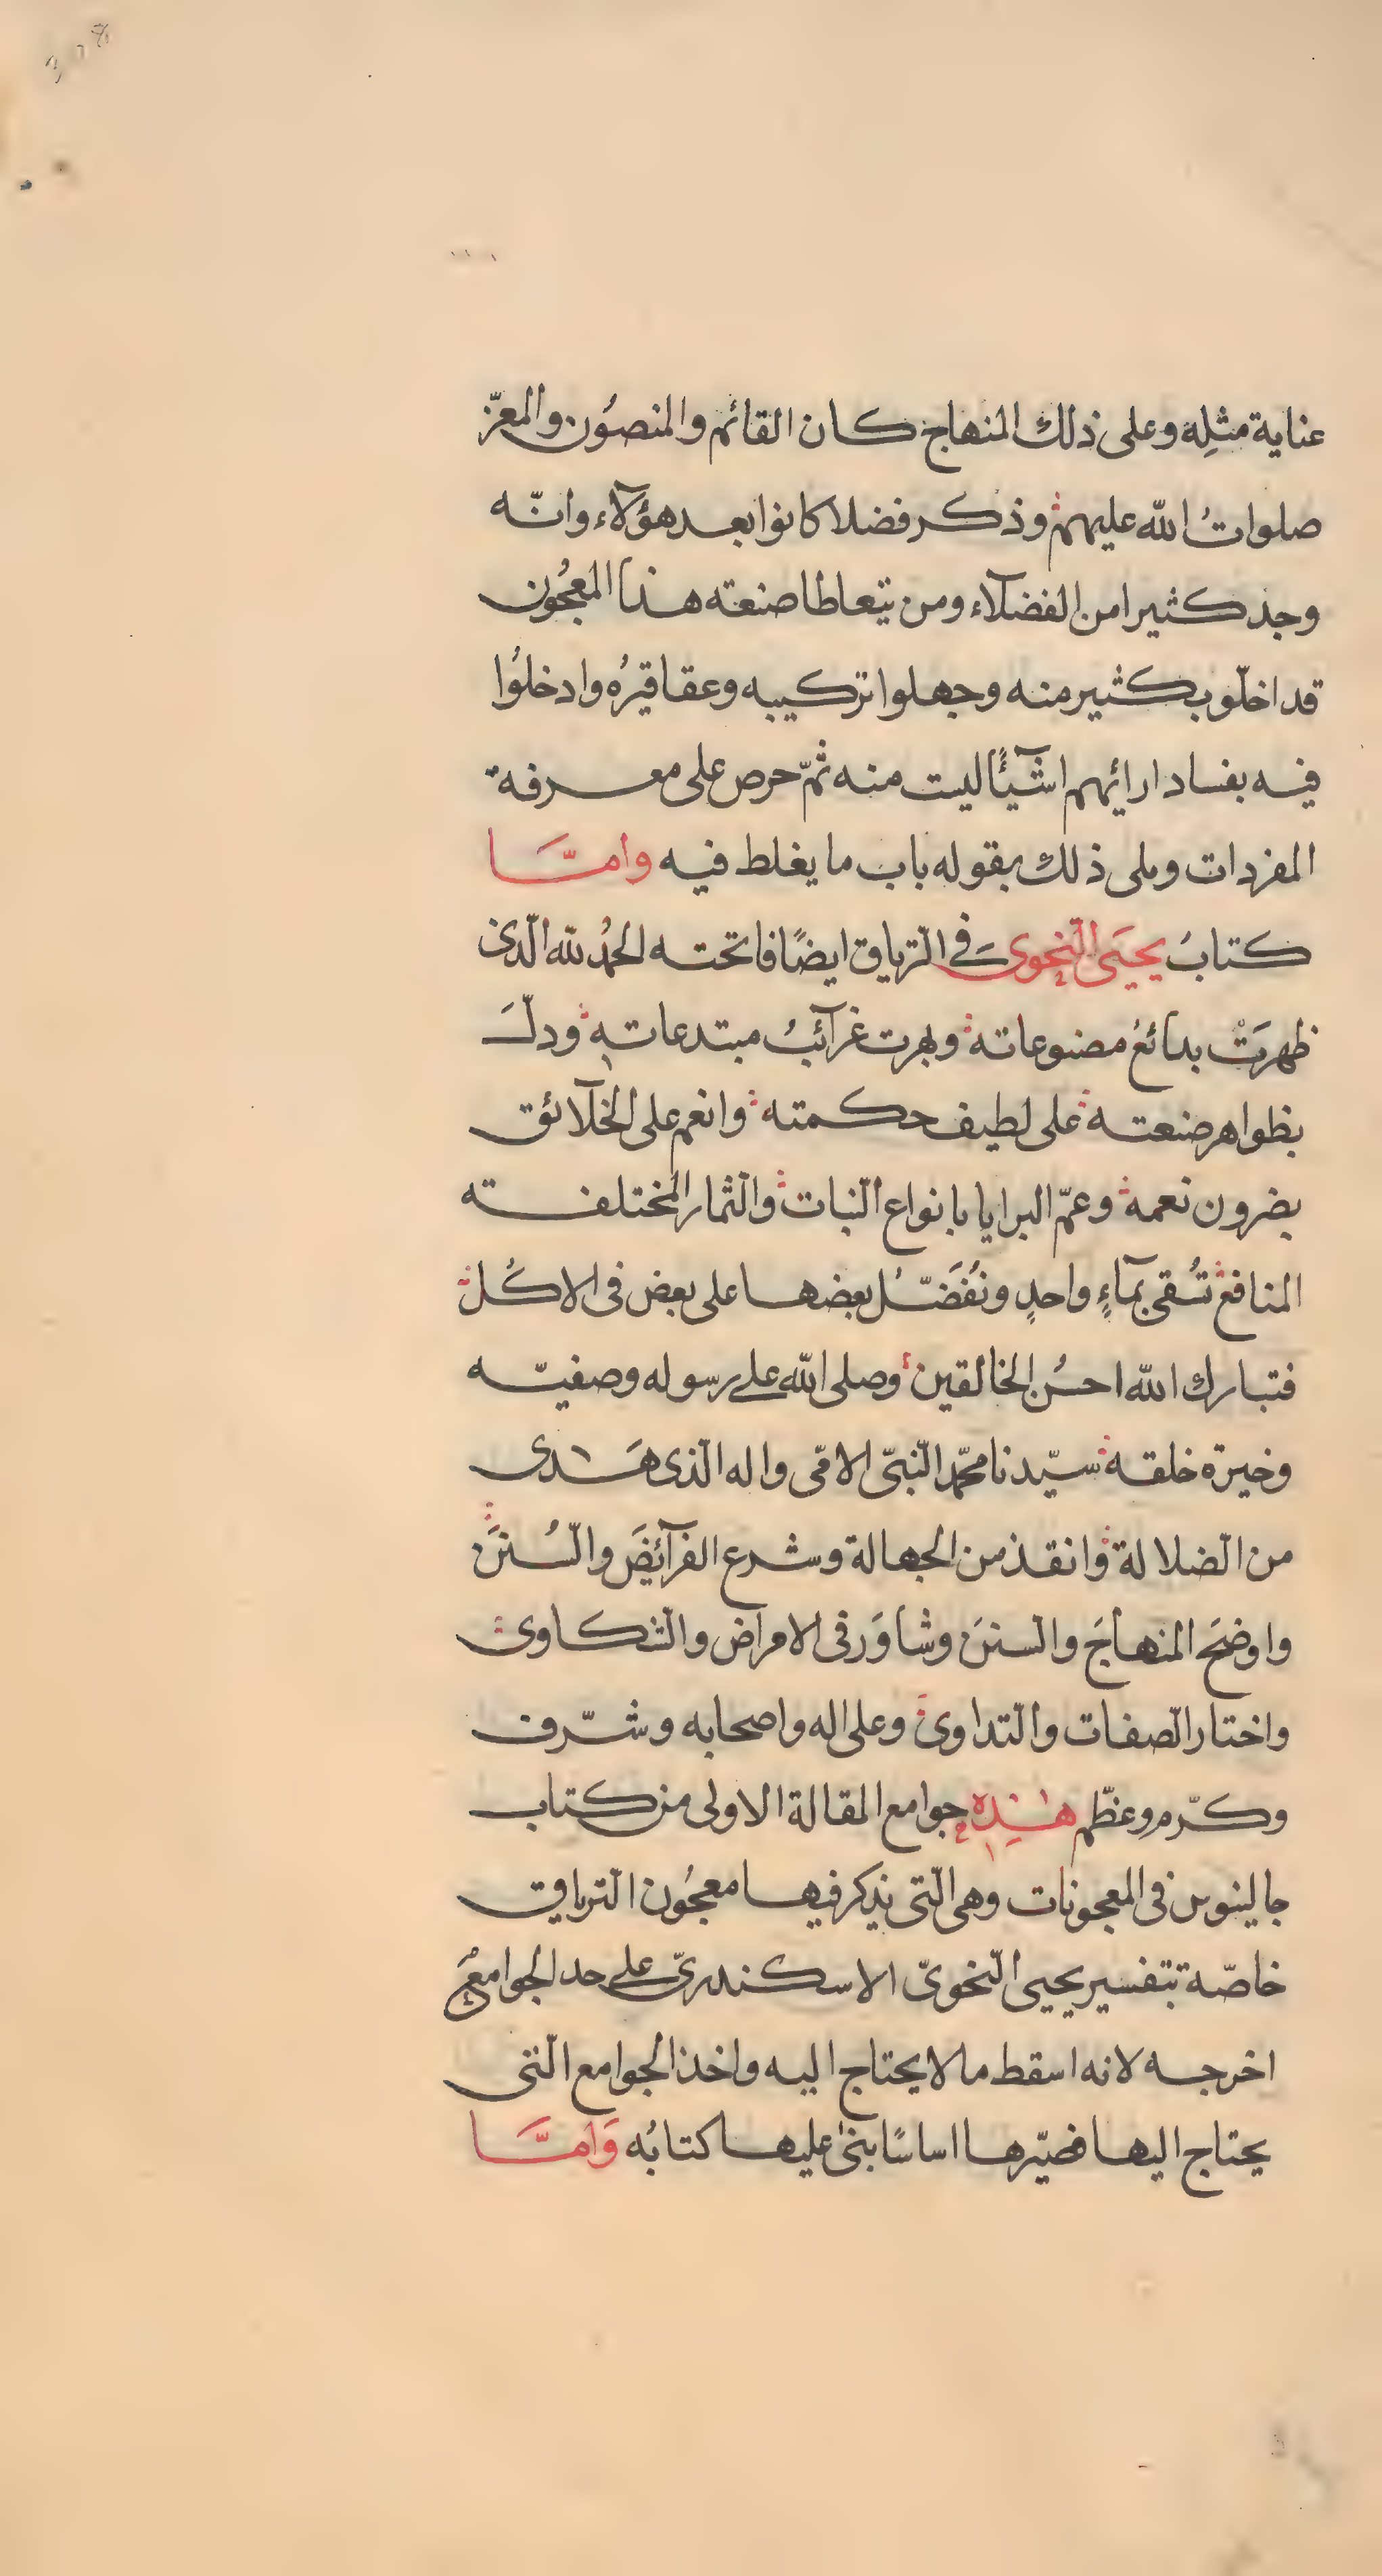 عناية مثلِه وعلى ذلك المنهاج كان القائم والمنصُون والمعزّ
صلواتُ الله عليهم وذكر فضلا كانوا بعد هؤلآء وانّه
وجد كثيرا من الفضلآء ومن يتعاطا صنعته هذا المعجُون
قد اخلّوب كثير منه وجهلوا تركيبه وعقاقيرُه وادخلُوا
فيه بفساد ارائهم اشيآئًا ليت منه ثمّ حرص على معرفة
المفردات وملى ذلك بقوله باب ما يغلط فيه وامّا
كتابُ يحيَى النّحوى في التّرياق ايضًا فاتحته الحمدُ لله الّذى
ظهرَتْ بدائعُ مصنوعاته وبهرت غرآئبُ مبتدعاته ودلّـَ
بظواهر صنعته على لطيف حكمته وانعم على الخلآئق
بضرون نعمه وعمّ البرايا بانواع النّبات والثّمار المختلفته
المنافع تُسقى بمآءٍ واحدٍ ونُفَضّلُ بعضها على بعض فى الاكُل
فتبارك الله احسنُ الخالقين وصلى الله على رسوله وصفيّه
وخيرة خلقه سيّدنا محمّد النّبىّ الامّى واله الّذى هَدى
من الضّلالة وانقذ من الجهالة وشرع الفرآئضَ والسُّننَ
واوضحَ المنهاجَ والسننَ وشاوَر فى الامراض والشّكاوى
واختار الصّفات والتّداوى وعلى اله واصحابه وشرّف
وكرّم وعظّم هٰذِهِ جوامع المقالة الاولى من كتاب
جالينوس فى المعجونات وهى الّتى يذكر فيها معجُون التّرياق
خاصّة بتفسير يحيى النّحوىّ الاسكندرىّ على حد الجوامعُ
اخرجه لانه اسقط ما لا يحتاج اليه واخذ الجوامع الّتى
يحتاج اليها فصيّرها اساسًا بنىٰ عليها كتابُه وَامَّا